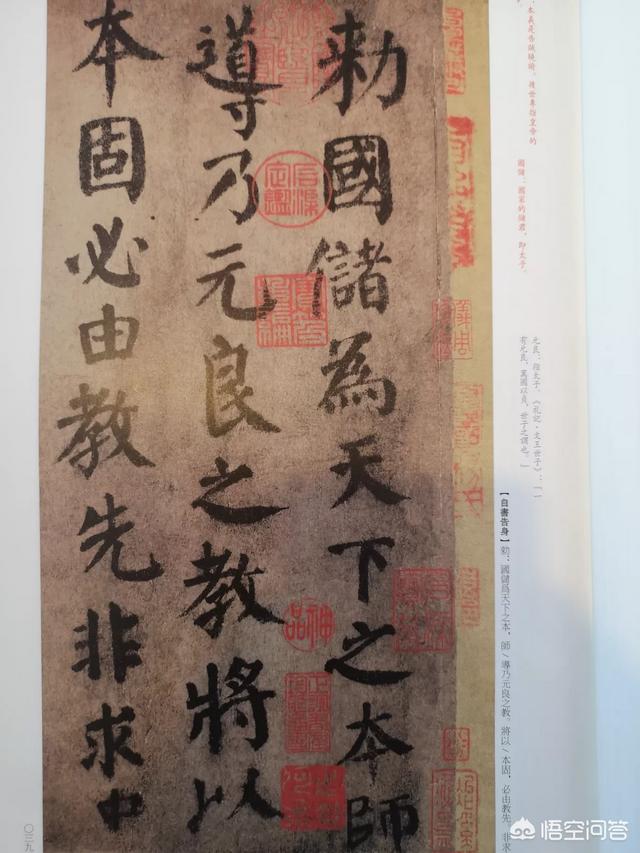 ：本義是告誡曉諭，後世專指皇帝的
國儲：國家的儲君，即太子。
元良：指太子。《礼記·文王世子》：「一
有元良，萬國以貞，世子之謂也。」
【自書告身】勅：國儲爲天下之本，師/導乃元良之教。將以/本固，必由教先。非求
勑國儲為天下之本師
導乃元良之教將以
本固必由教先非求中
神品
〇三九
悟空问答